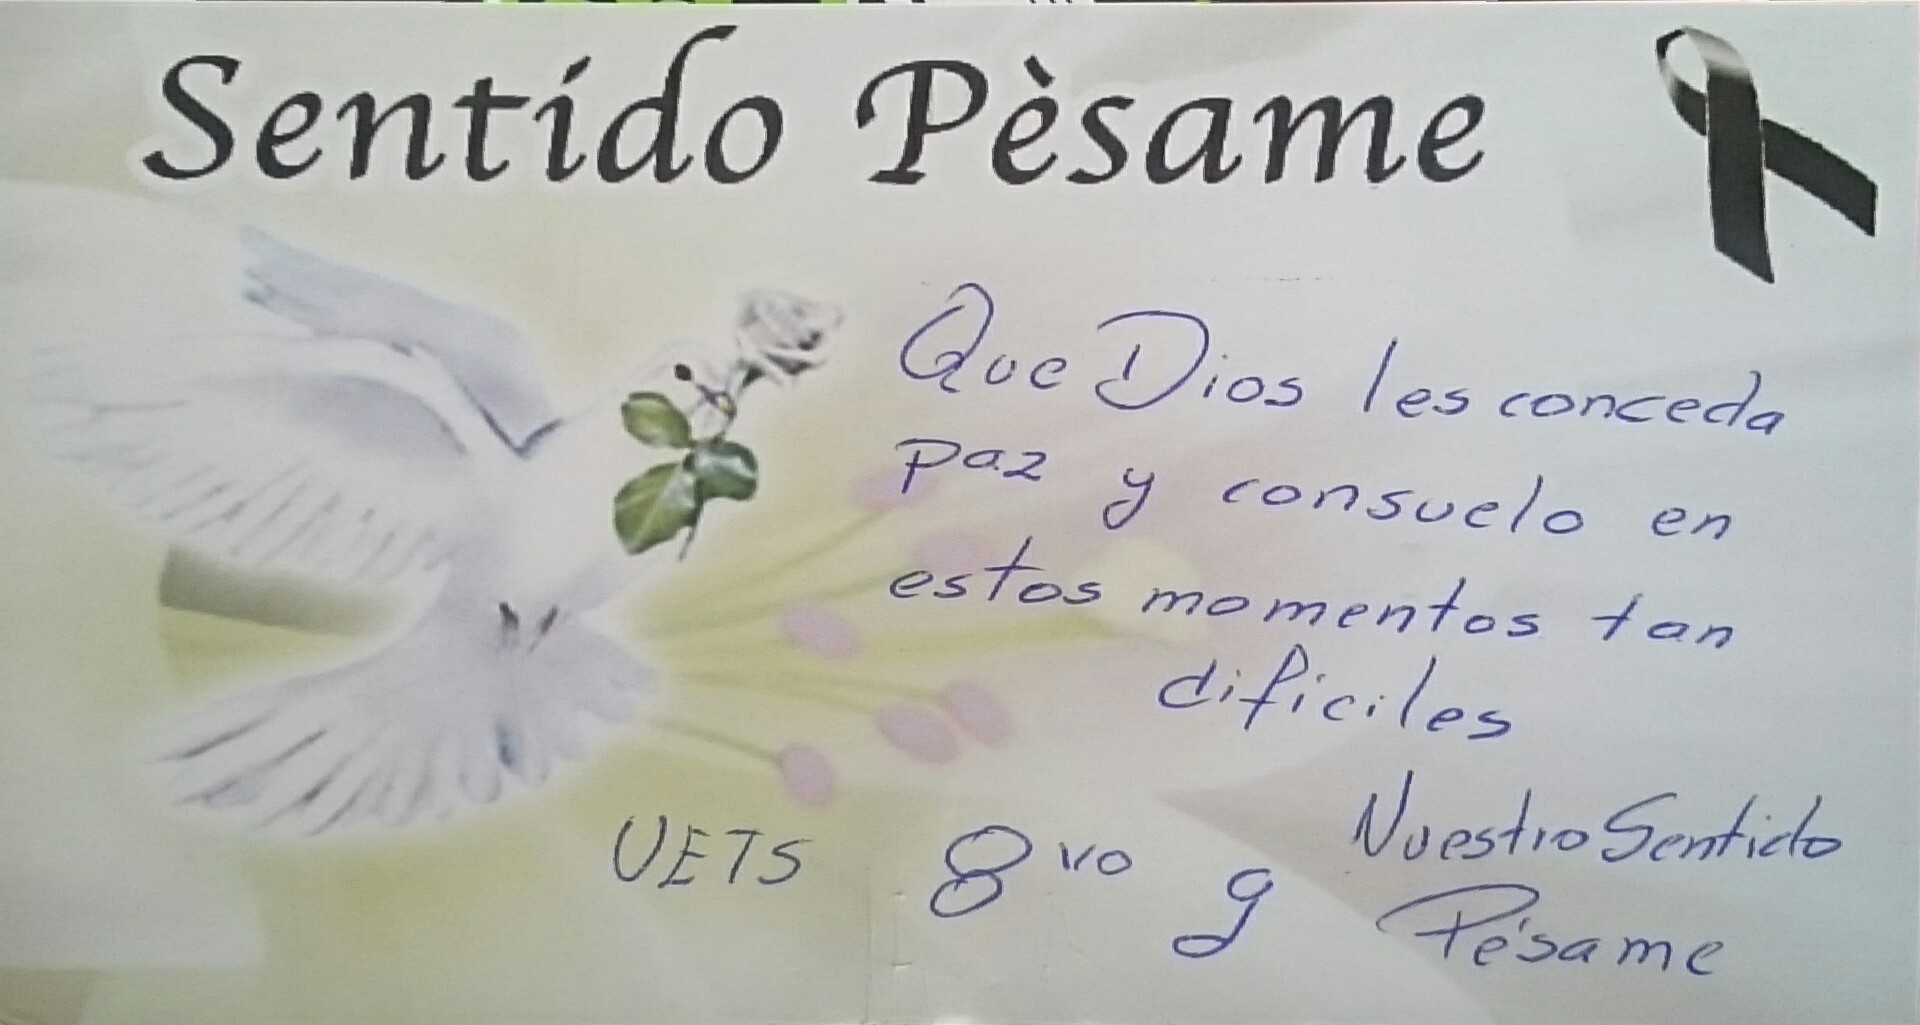 Sentido Pèsame
Que Dios les conceda
paz y consuelo en
estos momentos tan
dificiles
Nuestro Sentido
Pésame
UETS 8vo g